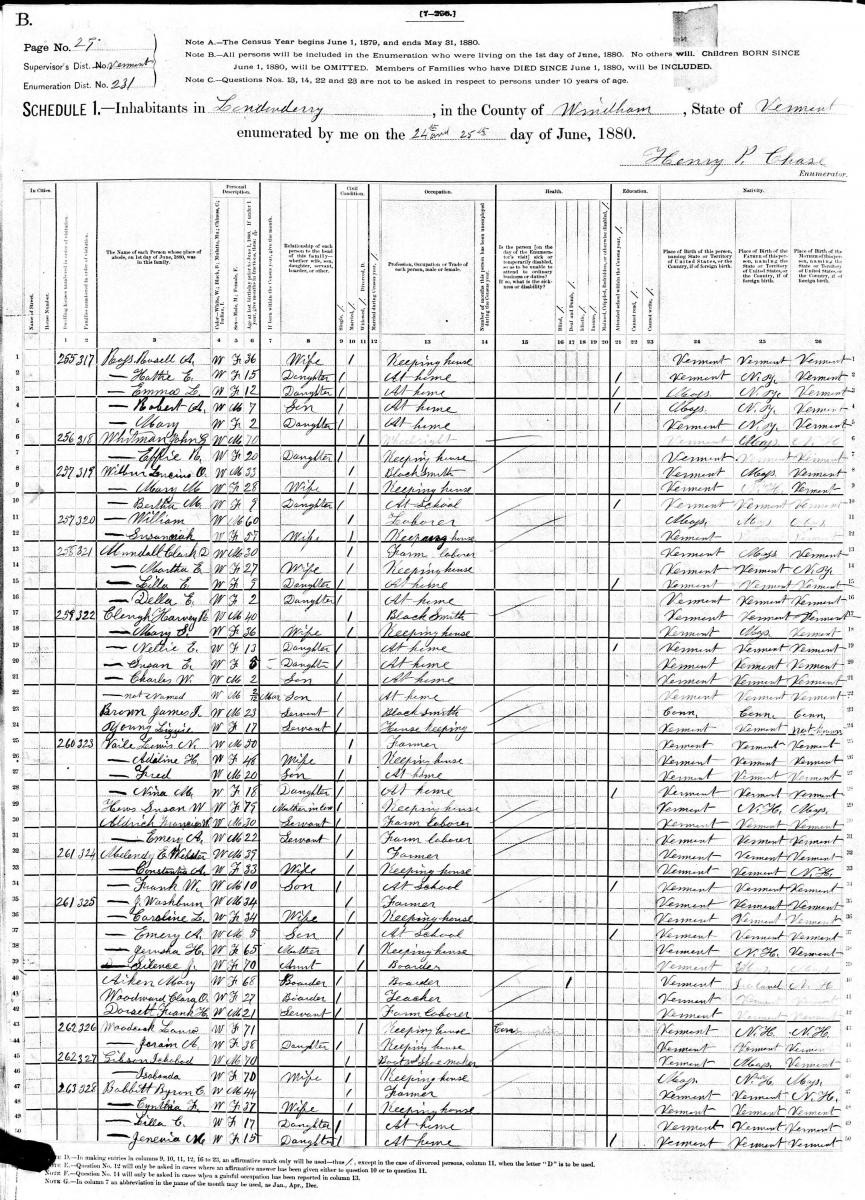 B.
[7-296.]
Page No. 27
Supervisor's Dist. No. Vermont
Enumeration Dist. No. 231
Note A.—The Census Year begins June 1, 1879, and ends May 31, 1880.
Note B.—All persons will be included in the Enumeration who were living on the 1st day of June, 1880. No others will. Children BORN SINCE
June 1, 1880, will be OMITTED. Members of Families who have DIED SINCE June 1, 1880, will be INCLUDED.
Note C.—Questions Nos. 13, 14, 22 and 23 are not to be asked in respect to persons under 10 years of age.
SCHEDULE 1.—Inhabitants in Londonderry, in the County of Windham, State of Vermont
enumerated by me on the 24th and 25th day of June, 1880.
Henry P. Chase
Enumerator.
In Cities. Personal Description. Civil Condition. Occupation. Health. Education. Nativity.
Name of Street. House Number. The Name of each Person whose place of abode, on 1st day of June, 1880, was in this family. Relationship of each person to the head of this family—whether wife, son, daughter, servant, boarder, or other. Profession, Occupation or Trade of each person, male or female.
1 2 3 4 5 6 7 8 9 10 11 12 13 14 15 16 17 18 19 20 21 22 23 24 25 26
1 255 317 Russell A. W F 36 Wife / Keeping house Vermont Vermont Vermont 1
2 — Hattie E. W F 15 Daughter / At home / Vermont N.Y. Vermont 2
3 — Emma L. W F 12 Daughter / At home / Mass. N.Y. Vermont 3
4 — Robert A. W M 7 Son / At home / Mass. N.Y. Vermont 4
5 — Mary W F 2 Daughter / At home Vermont N.Y. Vermont 5
6 256 318 Whitman John W M 70 / Wheelright Vermont Mass. N.H. 6
7 — Effie R. W F 20 Daughter / Keeping house Vermont Vermont Vermont 7
8 257 319 Wilbur Lucius O. W M 33 / Black Smith Vermont Mass. Vermont 8
9 — Mary M W F 28 Wife / Keeping house Vermont N.H. Vermont 9
10 — Bertha M. W F 9 Daughter / At School / Vermont Vermont Vermont 10
11 257 320 — William W M 60 / Laborer Mass. Mass. Mass. 11
12 — Susannah W F 57 Wife / Keeping house Vermont 12
13 258 321 Mundall Clark D W M 30 / Farm laborer Vermont Mass. Vermont 13
14 — Martha E. W F 27 Wife / Keeping house Vermont Vermont N.Y. 14
15 — Lilla E. W F 9 Daughter / At home / Vermont Vermont Vermont 15
16 — Della E. W F 2 Daughter / At home Vermont Vermont Vermont 16
17 259 322 Clough Harvey W M 40 / Black Smith Vermont Vermont Vermont 17
18 — Mary S. W F 36 Wife / Keeping house Vermont Mass. Vermont 18
19 — Nellie E. W F 13 Daughter / At home / Vermont Vermont Vermont 19
20 — Susan E. W F 5 Daughter / At home Vermont Vermont Vermont 20
21 — Charles W. W M 2 Son / At home Vermont Vermont Vermont 21
22 — not Named W M 2/12 Mar Son / At home Vermont Vermont Vermont 22
23 Brown James W M 23 Servant / Black Smith Conn. Conn. Conn. 23
24 Young Lizzie W F 17 Servant / House keeping Vermont Vermont Not Known 24
25 260 323 Vaile Lewis N. W M 50 / Farmer Vermont Vermont Vermont 25
26 — Adaline H. W F 48 Wife / Keeping house Vermont Vermont Vermont 26
27 — Fred W M 20 Son / At home Vermont Vermont Vermont 27
28 — Nina M. W F 18 Daughter / At home / Vermont Vermont Vermont 28
29 Hews Susan W W F 79 Mother in law / Keeping house Vermont N.H. Mass. 29
30 Aldrich Francis W M 30 Servant / Farm laborer Vermont Vermont Vermont 30
31 — Emery A. W M 22 Servant / Farm laborer Vermont Vermont Vermont 31
32 261 324 Melendy E. Webster W M 39 / Farmer Vermont Vermont Vermont 32
33 — Constantia A. W F 33 Wife / Keeping house Vermont Vermont N.H. 33
34 — Frank W. W M 10 Son / At School / Vermont Vermont Vermont 34
35 261 325 — J. Washburn W M 34 / Farmer Vermont Vermont Vermont 35
36 — Caroline L. W F 34 Wife / Keeping house Vermont Vermont Vermont 36
37 — Emery A. W M 5 Son / At School / Vermont Vermont Vermont 37
38 — Jerusha H. W F 65 Mother / Keeping house Vermont N.H. Vermont 38
39 — Silence J. W F 70 Aunt / Boarder Vermont 39
40 Aiken Mary W F 68 Boarder / Boarder / Vermont Ireland N.H. 40
41 Woodward Clara O. W F 27 Boarder / Teacher Vermont Vermont Vermont 41
42 Dorsett Frank H W M 21 Servant / Farm laborer Vermont Vermont Vermont 42
43 262 326 Woodcock Laura W F 71 / Keeping house Vermont N.H. N.H. 43
44 — A. W F 38 Daughter / Keeping house Vermont Vermont Vermont 44
45 262 327 Gibson Ichabod W M 70 / Boot and Shoe maker Vermont Mass. Vermont 45
46 — W F 70 Wife / Keeping house Mass. N.H. Mass. 46
47 263 328 Babbitt Byron C. W M 44 / Farmer Vermont Vermont N.H. 47
48 — Cynthia F. W F 37 Wife / Keeping house Vermont Vermont Vermont 48
49 — Lilla C. W F 17 Daughter / At home Vermont Vermont Vermont 49
50 — Jenevia M. W F 15 Daughter / At home / Vermont Vermont Vermont 50
NOTE D.—In making entries in columns 9, 10, 11, 12, 16 to 23, an affirmative mark only will be used—thus /, except in the case of divorced persons, column 11, when the letter "D" is to be used.
NOTE E.—Question No. 12 will only be asked in cases where an affirmative answer has been given either to question 10 or to question 11.
NOTE F.—Question No. 14 will only be asked in cases when a gainful occupation has been reported in column 13.
NOTE G.—In column 7 an abbreviation in the name of the month may be used, as Jan., Apr., Dec.